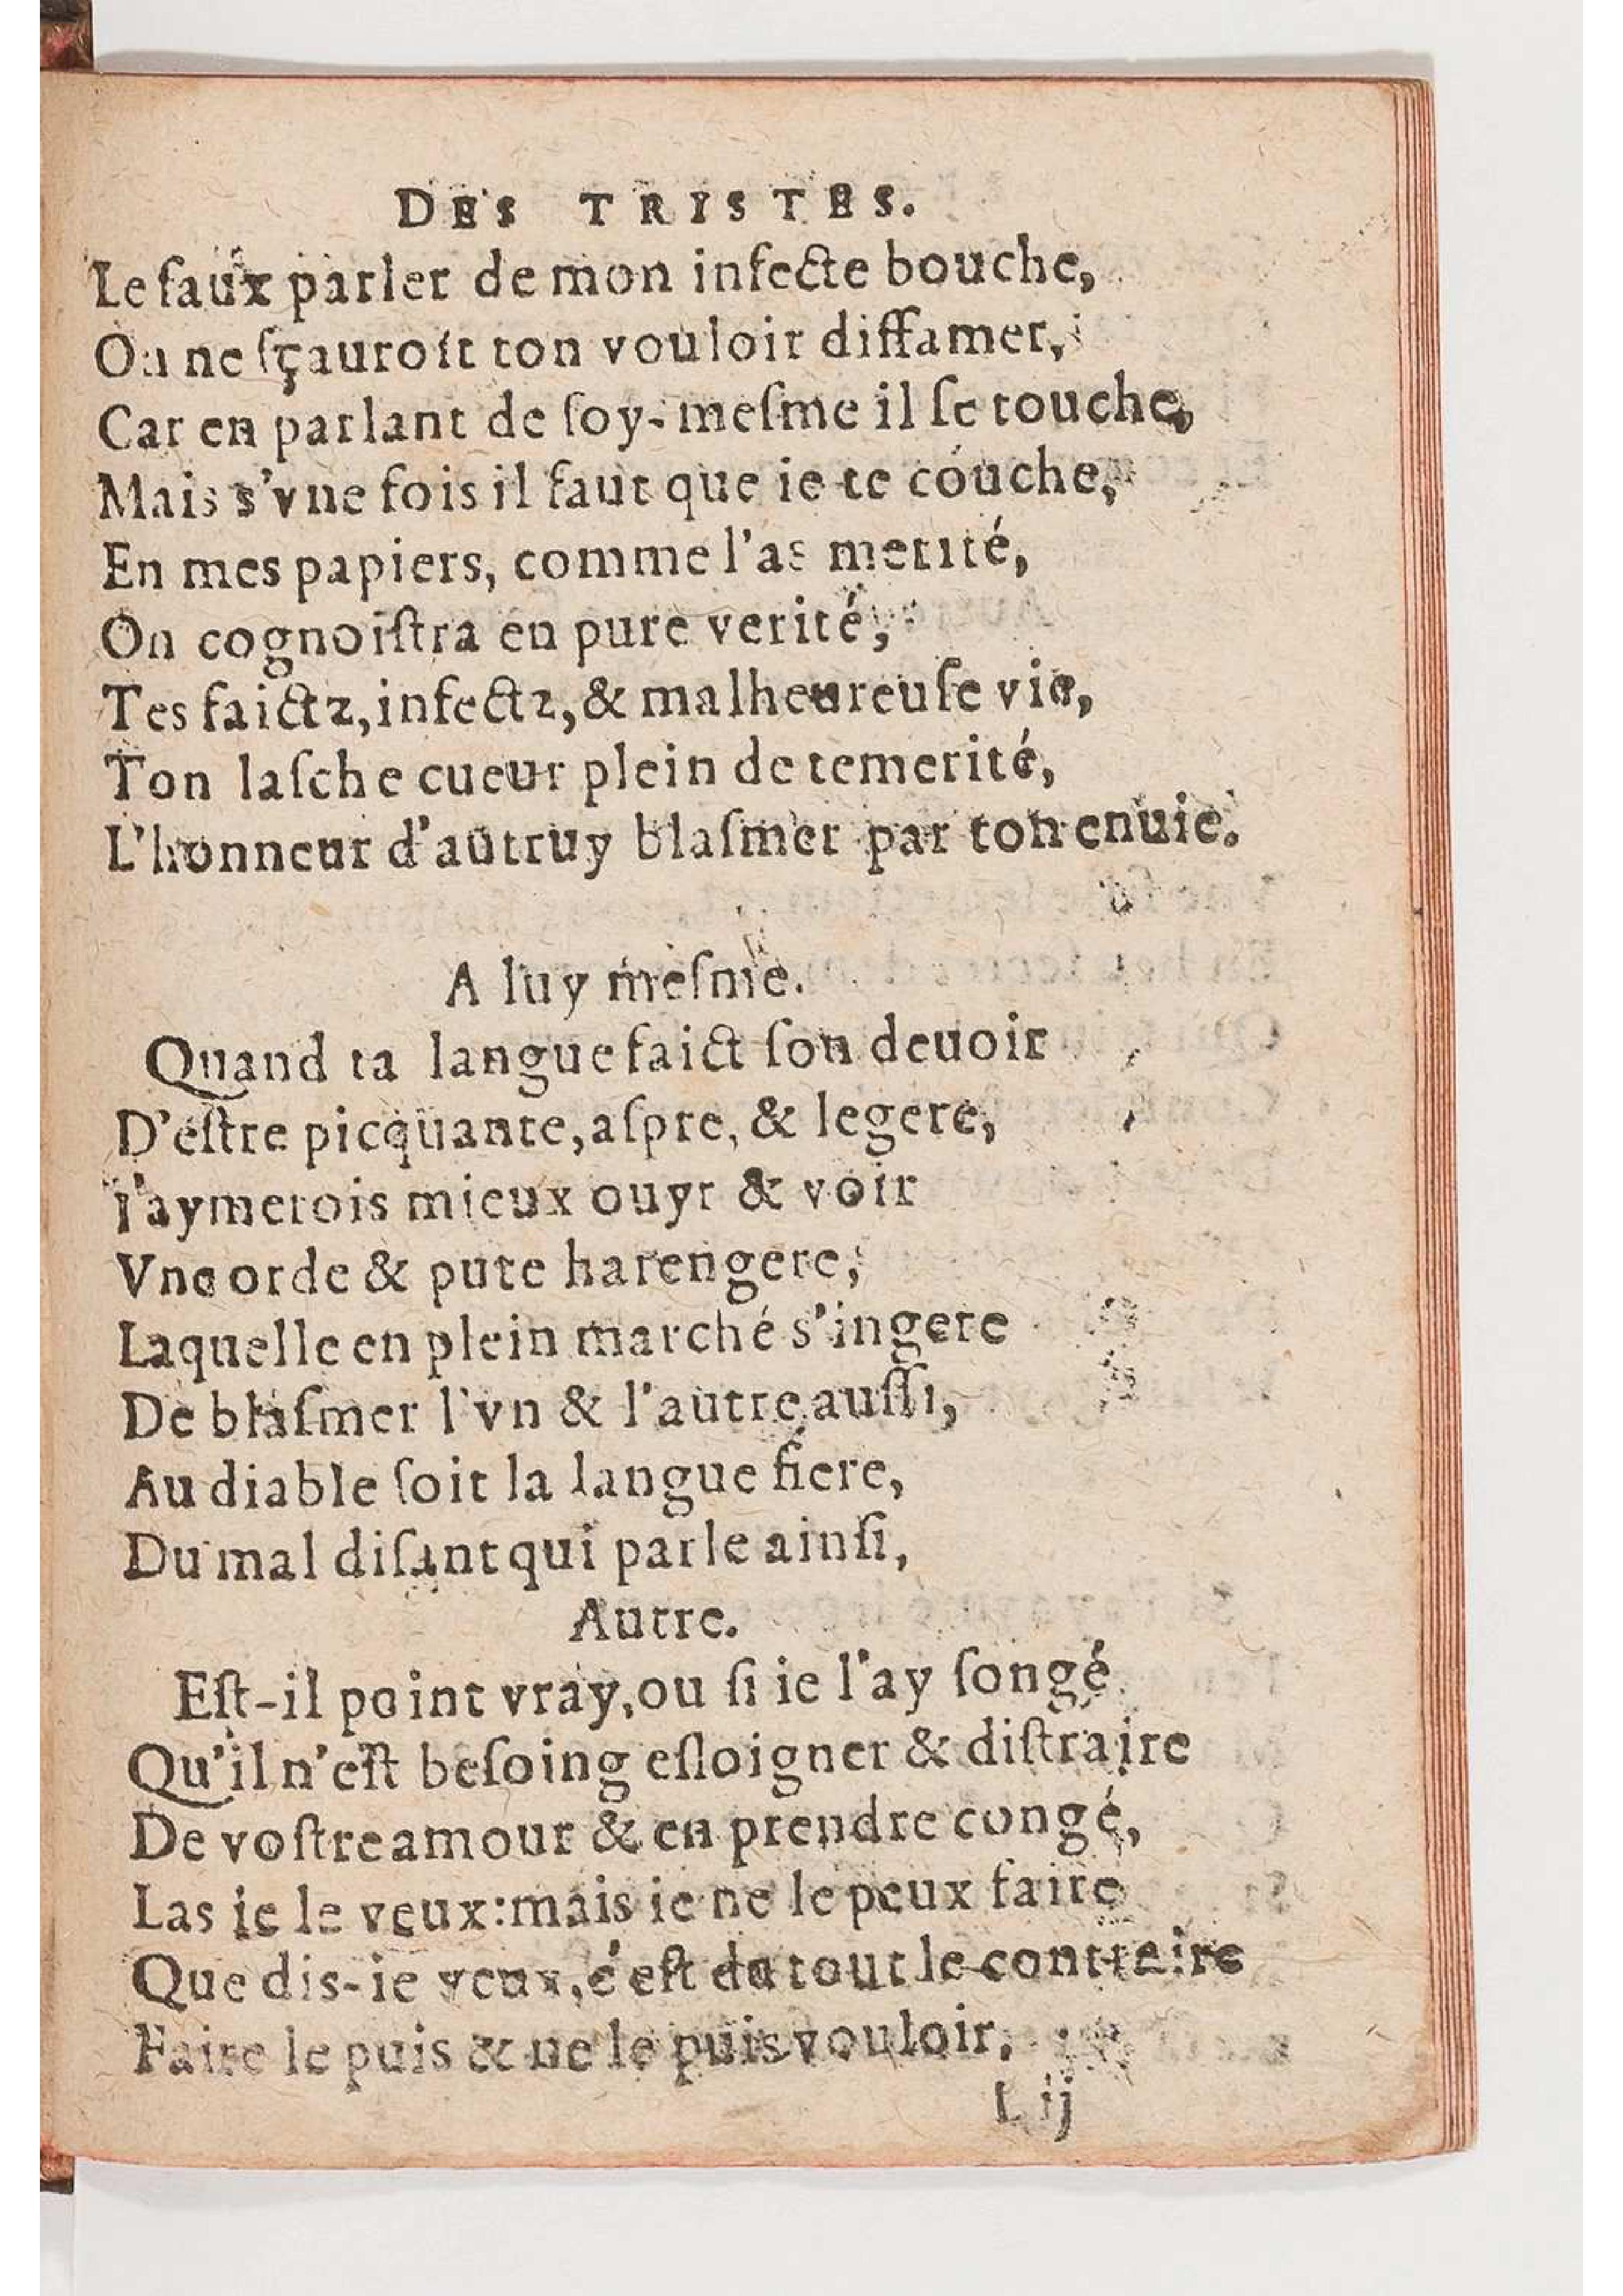 DES TRISTES.
Le faux parler de mon infecte bouche,
On ne ſçauroit ton vouloir diffamer,
Car en parlant de ſoy-meſme il ſe touche,
Mais s'vne fois il faut que ie te couche,
En mes papiers, comme l'as merité,
On cognoiſtra en pure verité,
Tes faictz, infectz, & malheureuſe vie,
Ton laſche cueur plein de temerité,
L'honneur d'autruy blaſmer par ton enuie.
A luy meſme.
Quand ta langue faict ſon deuoir
D'eſtre picquante, aſpre, & legere,
I'aymerois mieux ouyr & voir
Vne orde & pute harengere,
Laquelle en plein marché s'ingere
De blaſmer l'vn & l'autre auſſi,
Au diable ſoit la langue fiere,
Du mal diſant qui parle ainſi,
Autre.
Eſt-il point vray, ou ſi ie l'ay ſongé
Qu'il n'eſt beſoing eſloigner & diſtraire
De voſtre amour & en prendre congé,
Las ie le veux: mais ie ne le peux faire
Que dis-ie veux, c'eſt du tout le contraire
Faire le puis & ne le puis vouloir,
L ij